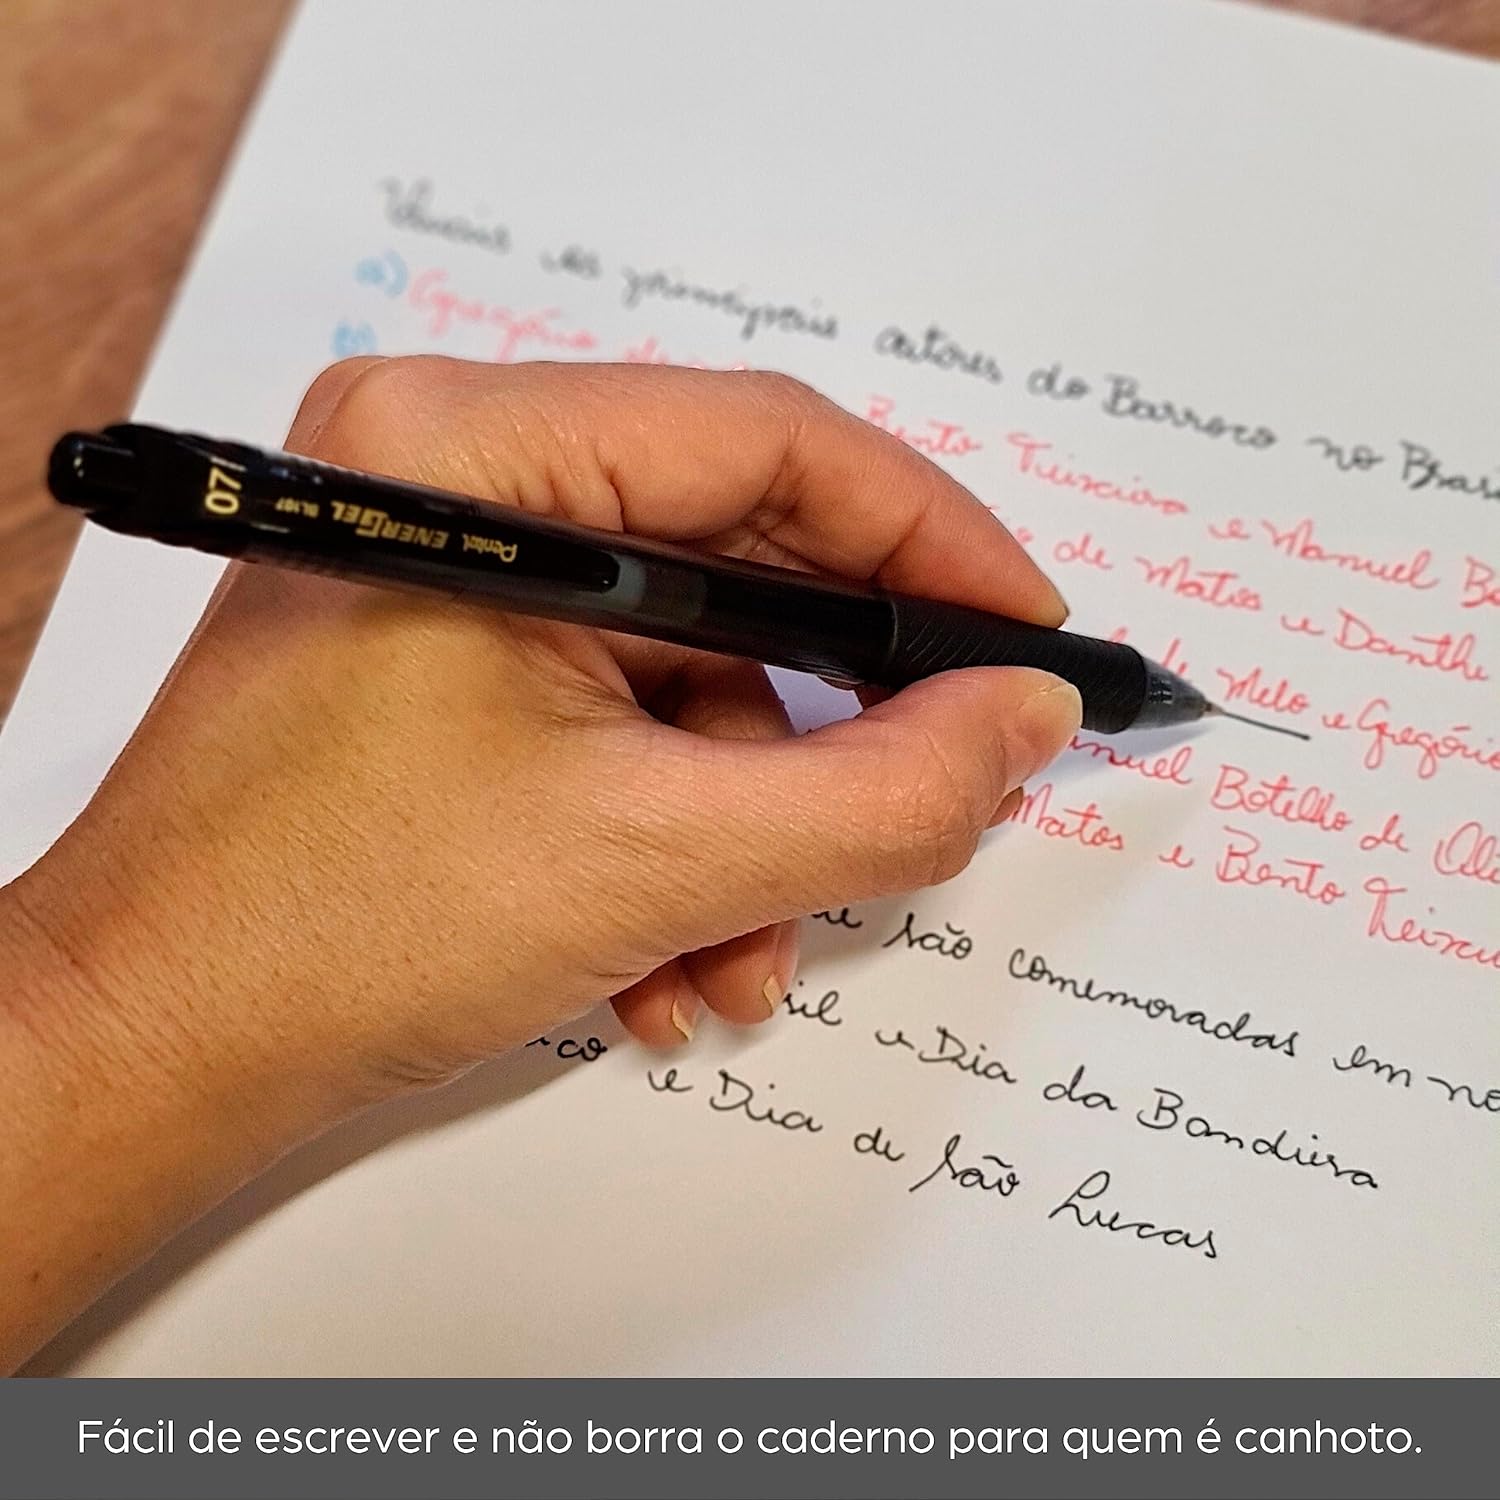 os principais autores do Barroco no Brasil
a) Gregório de Bento Teixeira e Manuel Bo
b) de Matos e Danthe
de Melo e Gregório
anuel Botelho de Oli
Matos e Bento Teixei
são comemoradas em no
sil e Dia da Bandeira
co e Dia de São Lucas
07
Pentel ENERGEL BL107
Fácil de escrever e não borra o caderno para quem é canhoto.